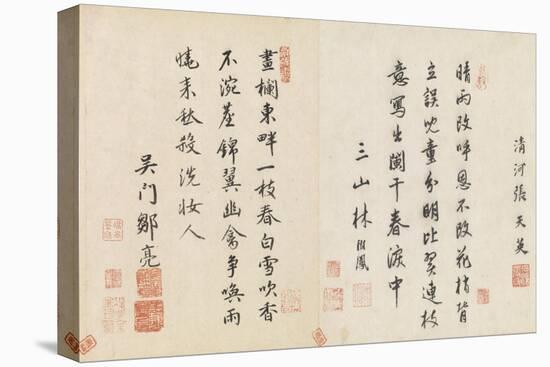 清河張天英
晴雨改呼恩不改花梢背
立誤兒童分明比翼連枝
意寫出闌干春淚中
三山林鳳
畫欄東畔一枝春白雪吹香
不涴塵錦翼幽禽爭喚雨
曉來愁殺洗妝人
吳門鄒亮